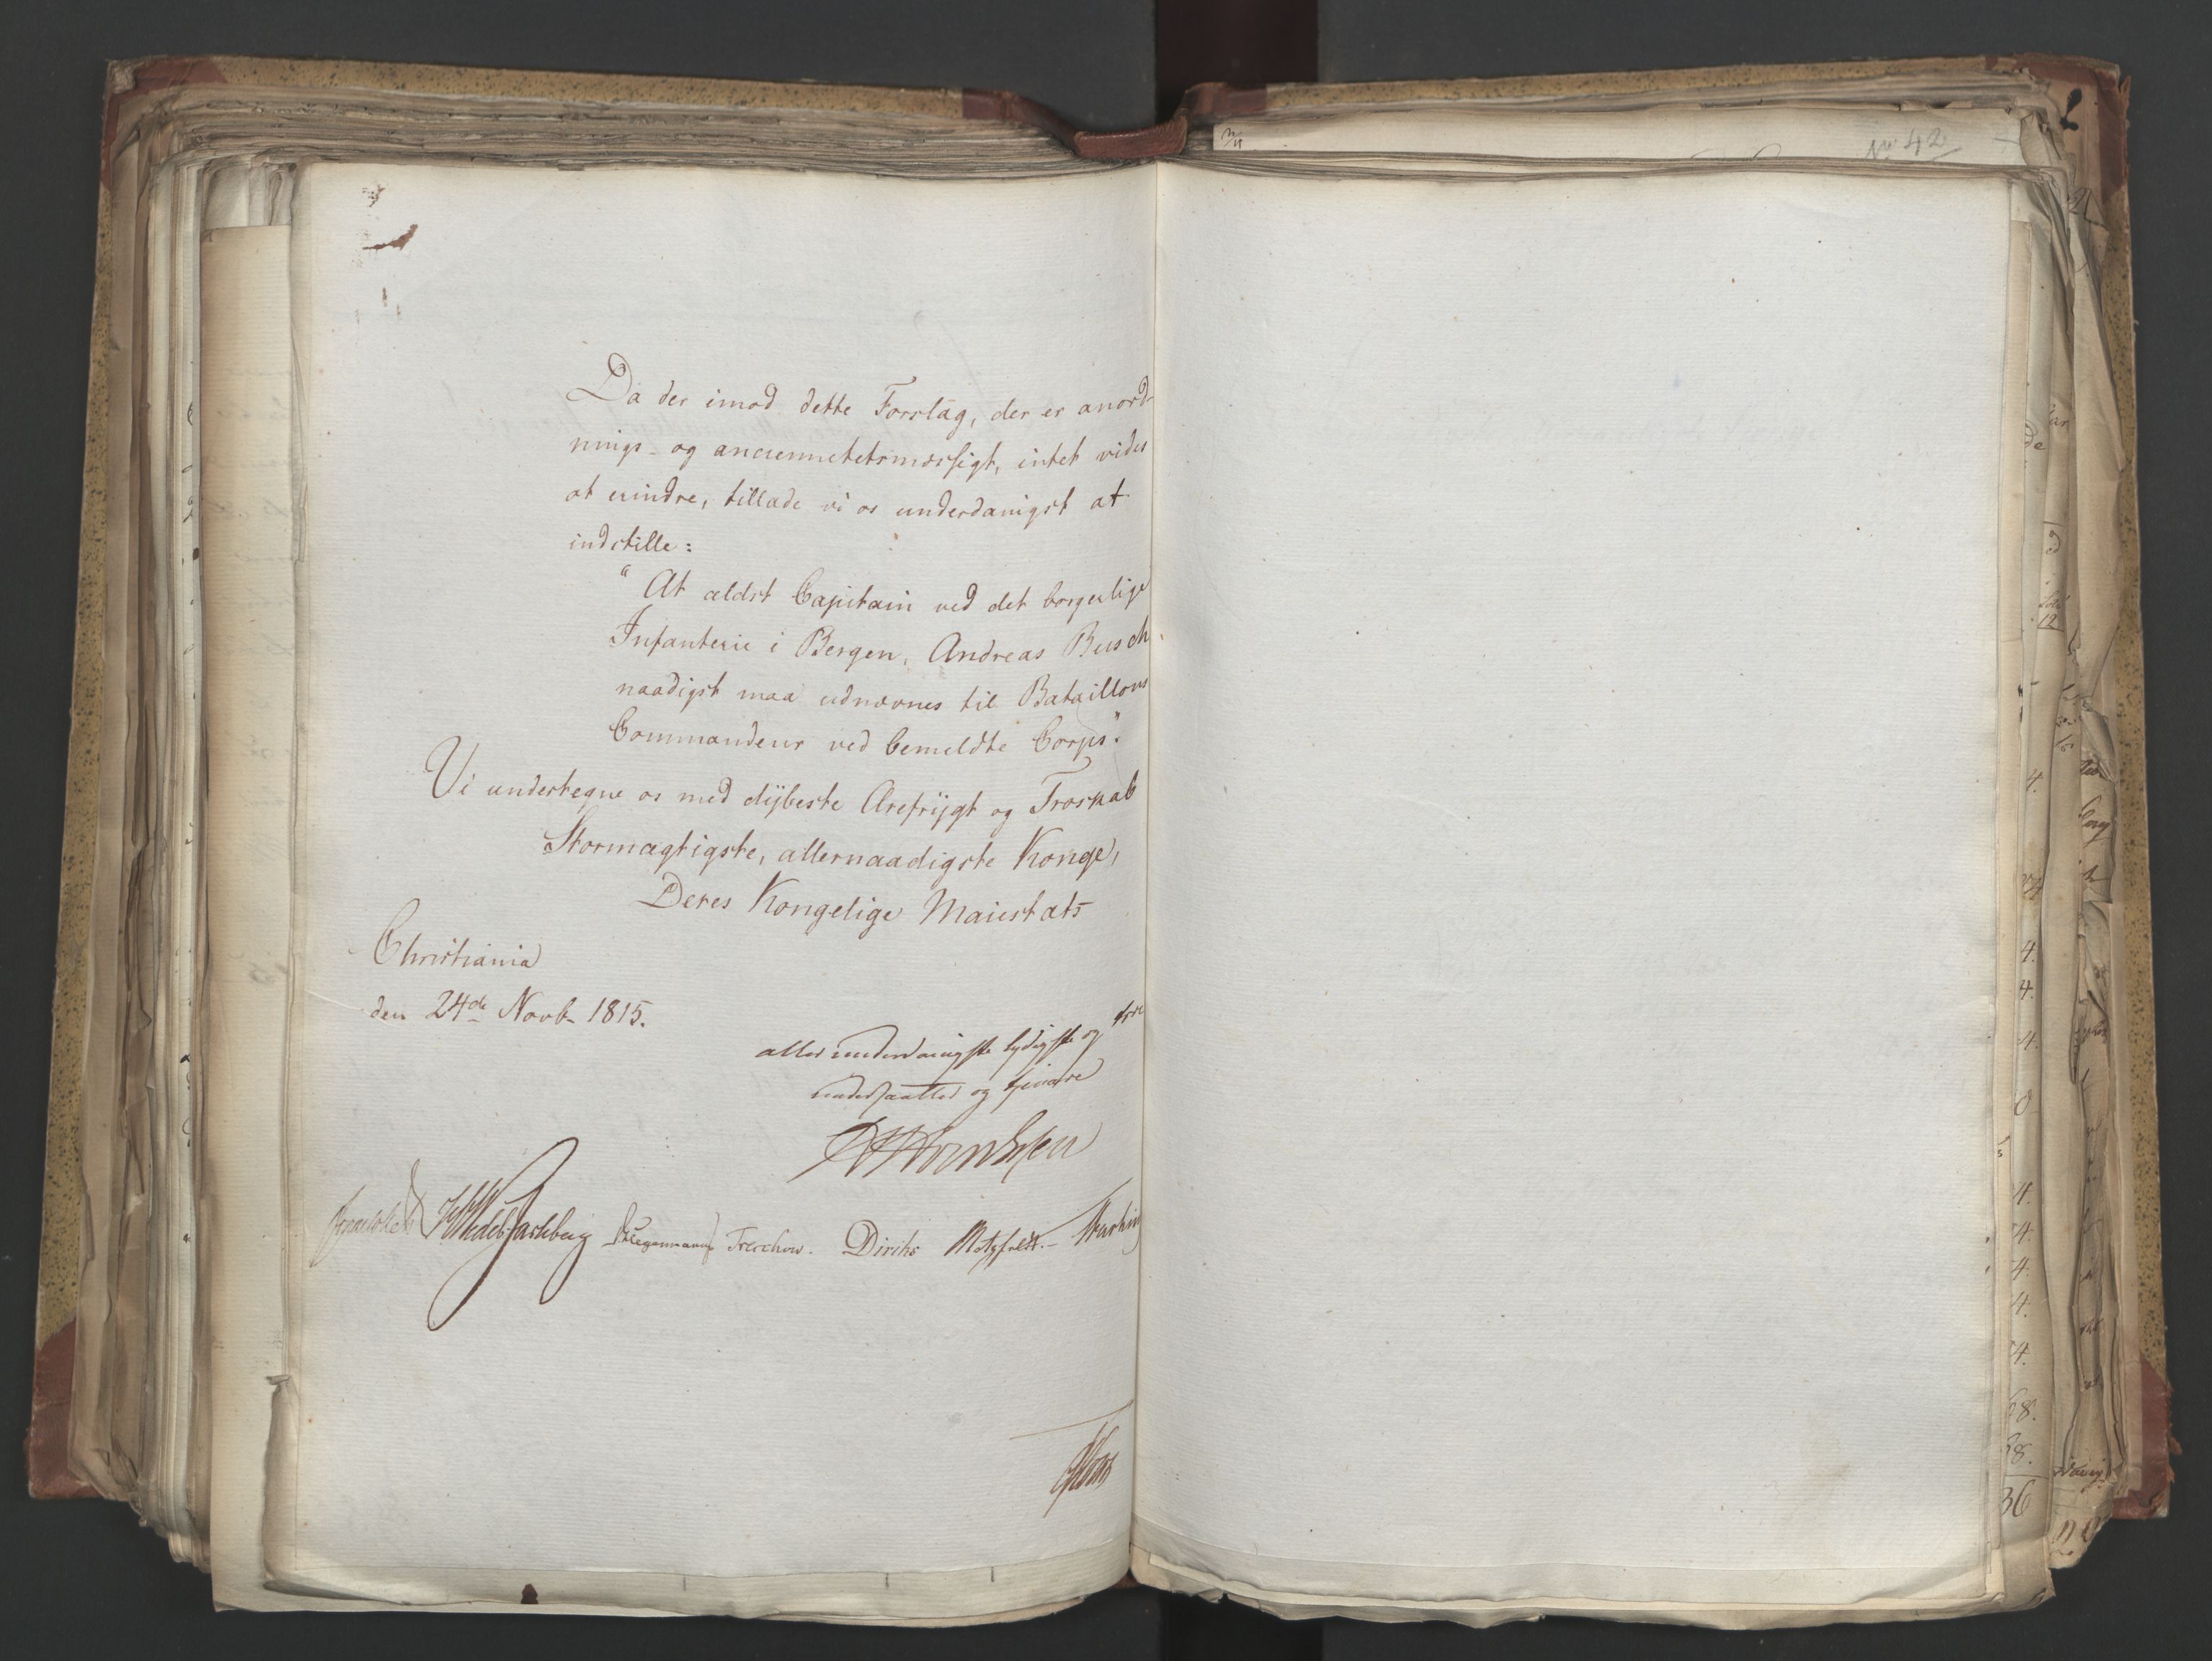 Da der imod dette Forslag, der er anord-
nings- og anciennetetsmæssigt, intet vides
at erindre, tillade vi os underdanigst at
indstille:
"At ældst Capitain ved det borgerlige
Infanterie i Bergen, Andreas Busch
naadigst maa udnævnes til Bataillons
Commandeur ved bemeldte Corps".
Vi undertegne os med dÿbeste Ærefrÿgt og Troskab
Stormægtigste, allernaadigste Konge,
Deres Kongelige Maiestæts
Christiania
den 24de Novb. 1815.
allerunderdanigste lydigste og troe
undersaatter og tjenere
Wedel Jarlsberg Treschow. Diriks Motzfeldt.
No 42